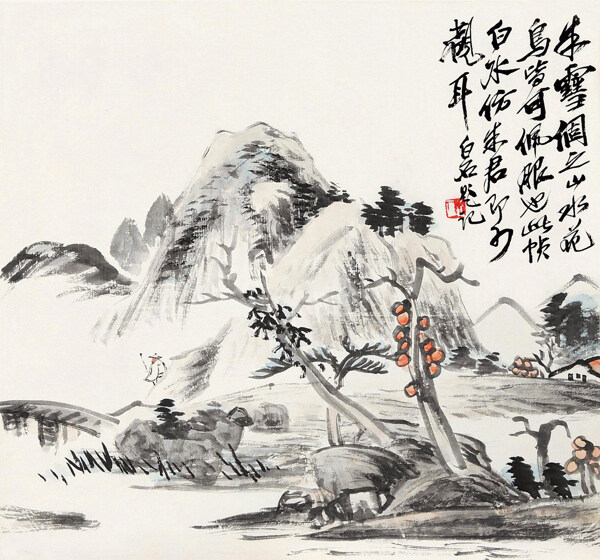 朱雪個之山水花
鳥皆可佩服也此幀
白冰仿朱君即可
觀耳 白石題記